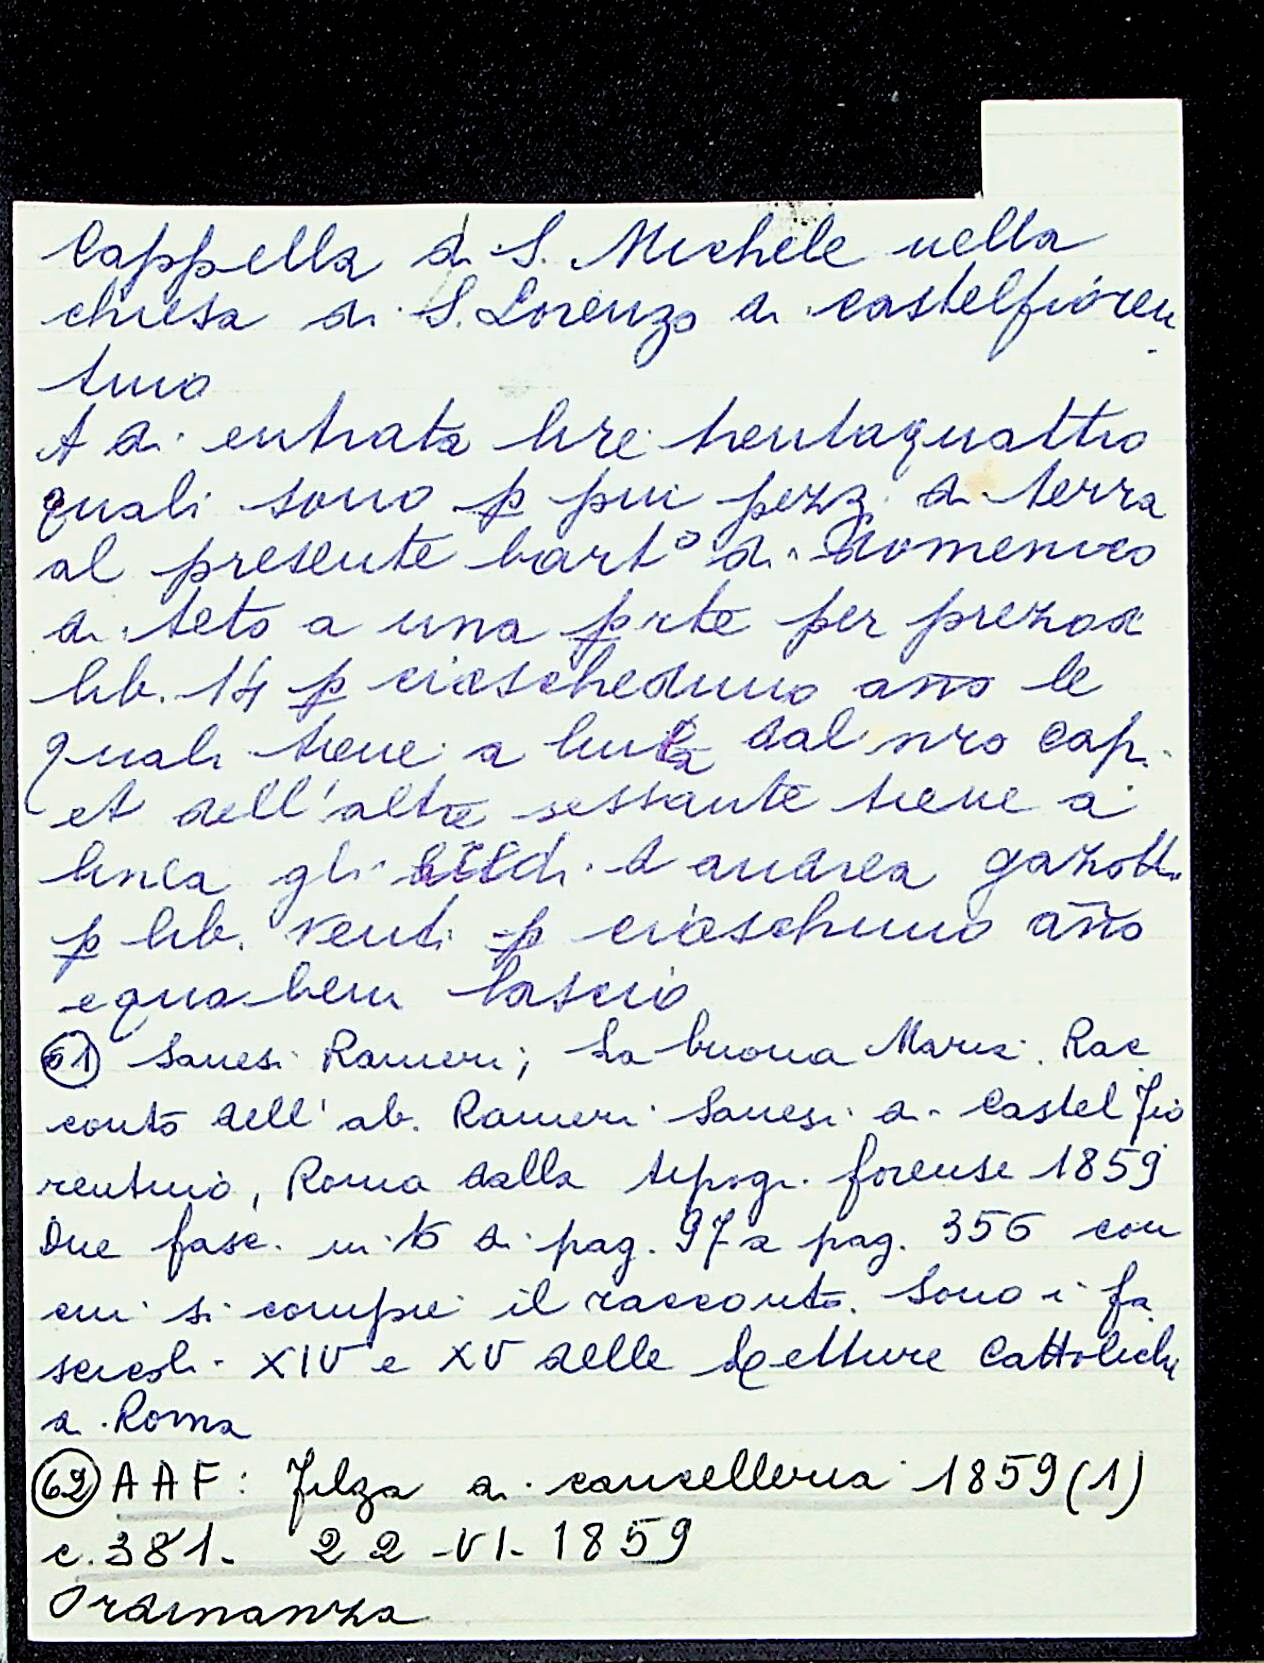 Cappella di S. Michele nella
chiesa di S. Lorenzo di castelfioren
tino
A di entrata lire trentaquattro
quali sono p piu pezzi di terra
al presente bart° di Domenico
di teto a una prte per prezo di
lib. 14 p ciascheduno año le
quali tiene a linea dal nro cap.
et dell'altre sessante tiene a
linea gli d andrea gazotti
p lib. venti p ciaschuno año
equa beni lascio
61) Sanesi Ranieri; La buona Maria. Rac
conto dell'ab. Ranieri Sanesi di Castel Fio
rentino, Roma dalla tipogr. forense 1859
Due fasc. in 16 di pag. 97 a pag. 356 con
cui si compie il racconto. Sono i fa
scicoli XIV e XV delle Letture Cattoliche
di Roma
62) AAF: Filza di cancelleria 1859 (1)
c. 381. 22-VI-1859
Ordinanza